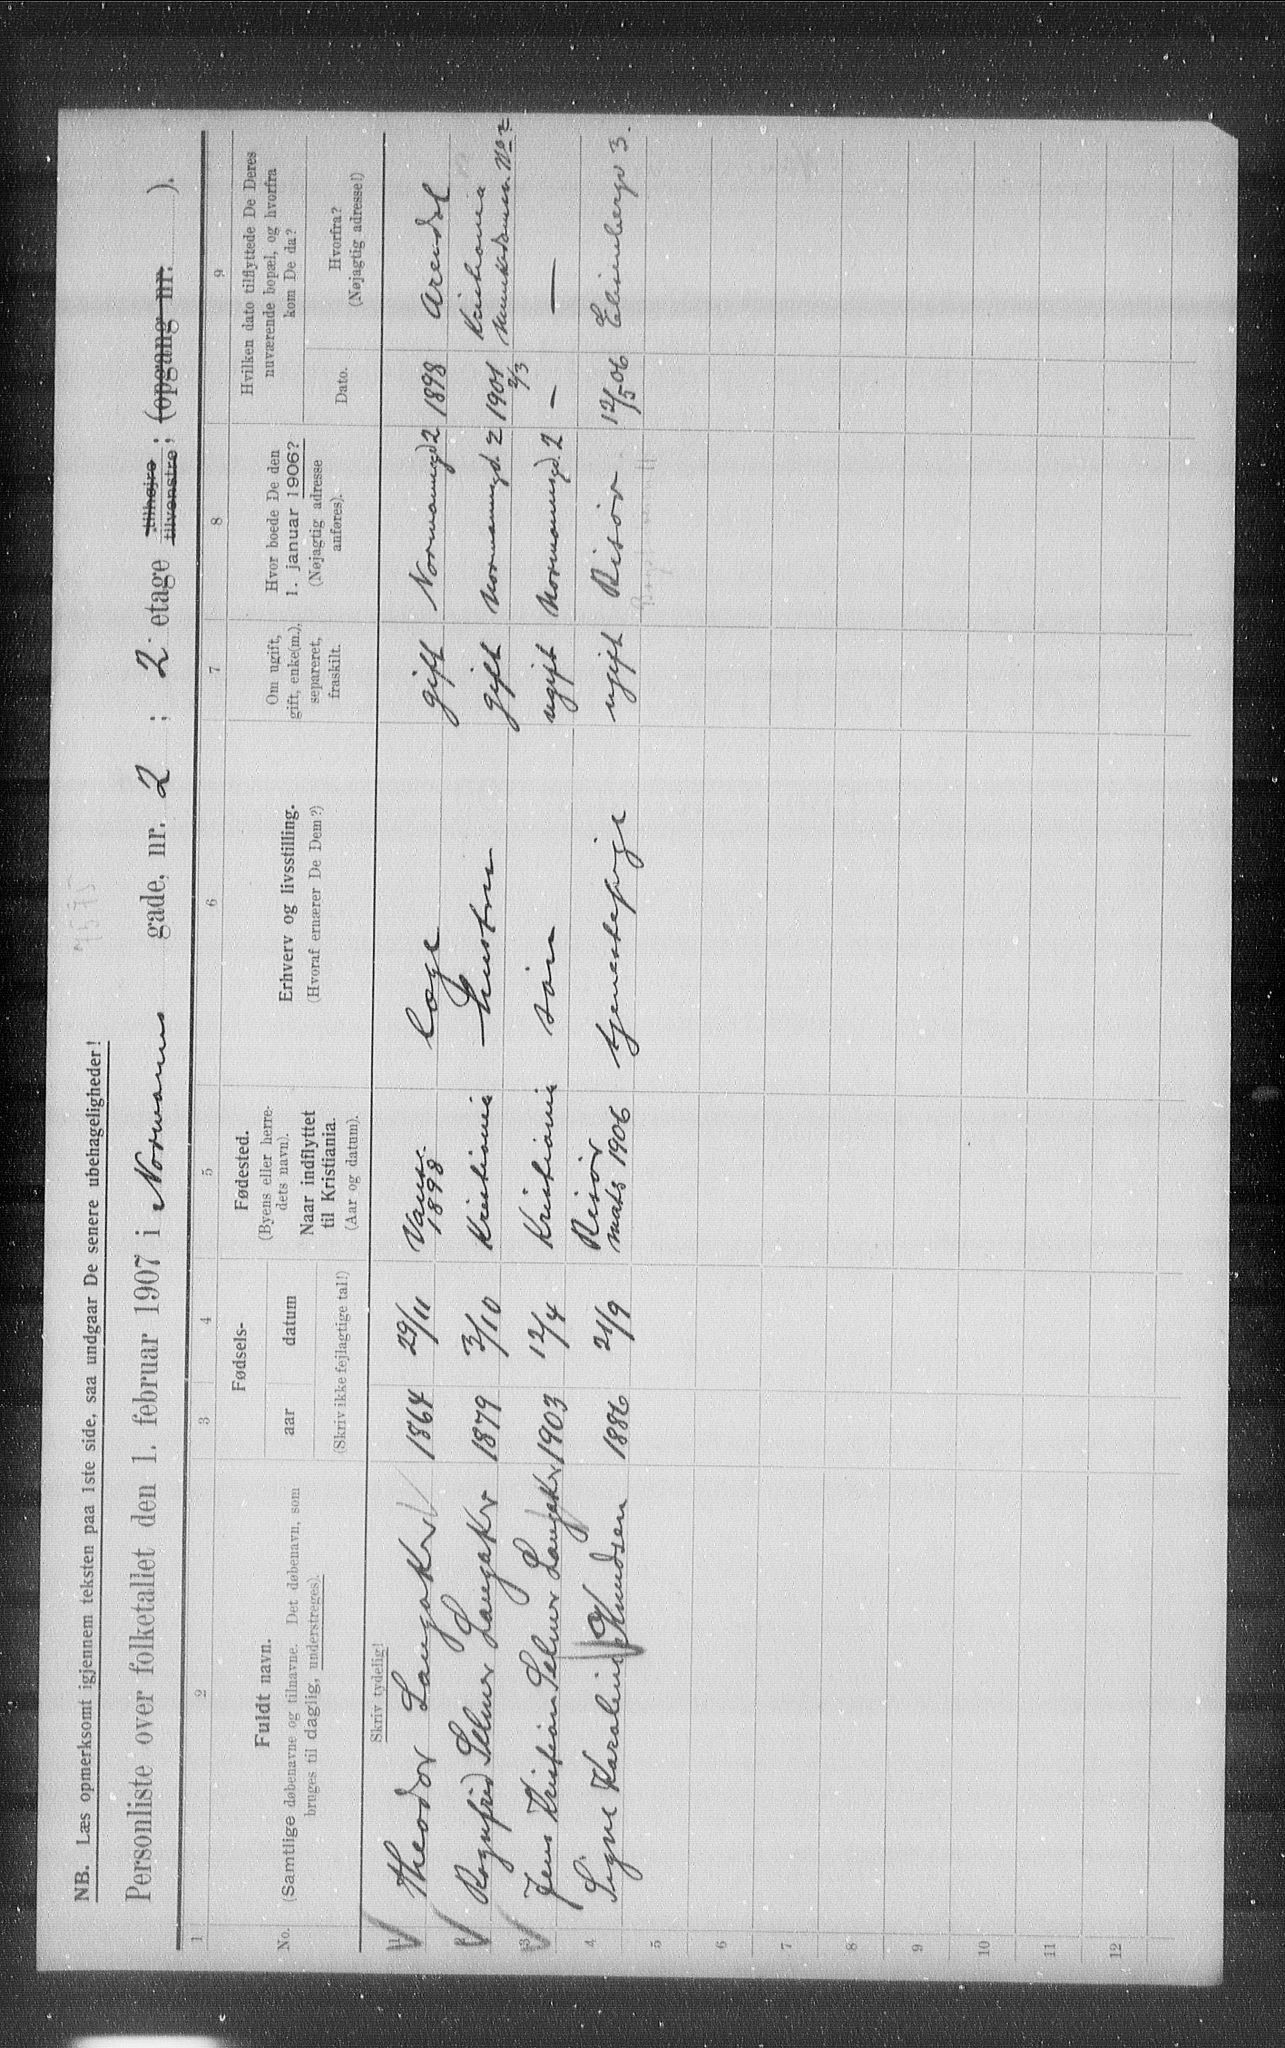 NB. Læs opmerksomt igjennem teksten paa 1ste side, saa undgaar De senere ubehageligheder!
Personliste over folketallet den 1. februar 1907 i Normanns gade, nr. 2 ; 2 etage tilhøjre tilvenstre; (opgang nr. ).
1 2 3 4 5 6 7 8 9
No.
Fuldt navn.
(Samtlige døbenavne og tilnavne. Det døbenavn, som
bruges til daglig, understreges).
Fødsels-
aar datum
(Skriv ikke fejlagtige tal!)
Fødested.
(Byens eller herre-
dets navn).
Naar indflyttet
til Kristiania.
(Aar og datum).
Erhverv og livsstilling.
(Hvoraf ernærer De Dem?)
Om ugift,
gift, enke(m.),
separeret,
fraskilt.
Hvor boede De den
1. januar 1906?
(Nøjagtig adresse
anføres).
Hvilken dato tilflyttede De Deres
nuværende bopæl, og hvorfra
kom De da?
Dato.
Hvorfra?
(Nøjagtig adresse!)
Skriv tydelig!
1 Theodor Langaker 1864 29/11 Vanse 1898 læge gift Normannsgd 2 1898 Arendal
2 Ragnfrid Selmer Langaker 1879 3/10 Kristiania hustru gift Normannsgd. 2 1901 2/3 Kristiania
3 Jens Kristian Selmer Langaker 1903 12/4 Kristiania søn ugift Normannsgd. 2 — —
4 Signe Karoline Knudsen 1886 21/9 Risør mats 1906 tjenestepige ugift Risør 12/5 06 Eilensbergv 3.
5
6
7
8
9
10
11
12